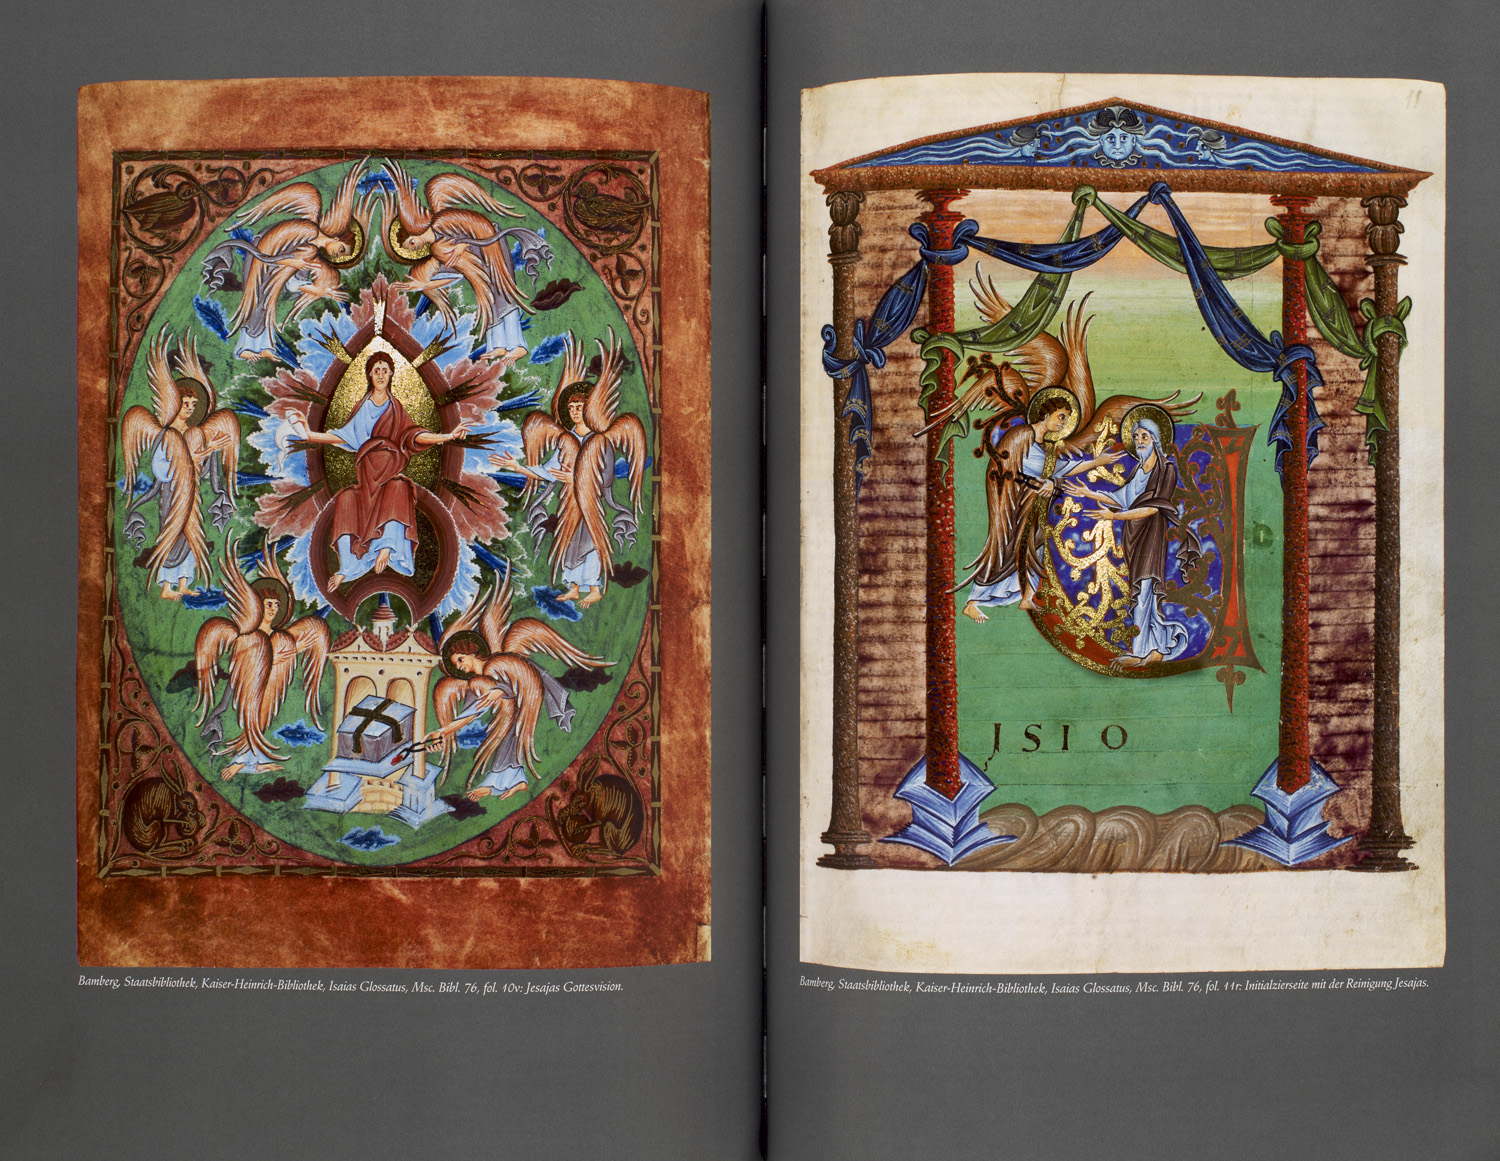 Bamberg, Staatsbibliothek, Kaiser-Heinrich-Bibliothek, Isaias Glossatus, Msc. Bibl. 76, fol. 10v: Jesajas Gottesvision.
11
JSIO
Bamberg, Staatsbibliothek, Kaiser-Heinrich-Bibliothek, Isaias Glossatus, Msc. Bibl. 76, fol. 11r: Initialzierseite mit der Reinigung Jesajas.